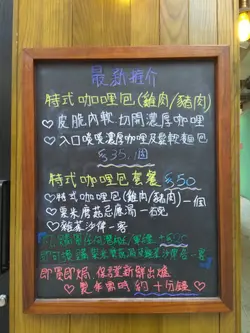 最新推介
特式咖喱包(雞肉/豬肉)
♡皮脆內軟 切開濃厚咖喱
♡入口啖啖濃厚咖喱及鬆軟麵包
$35.1個
特式咖哩包套餐 $50
♡特式咖哩包(雞肉/豬肉)一個
♡粟米蘑菇忌廉湯一碗
♡雞菜沙律一客
即買即焗,保證新鮮出爐
♡製作需時約十分鐘♡